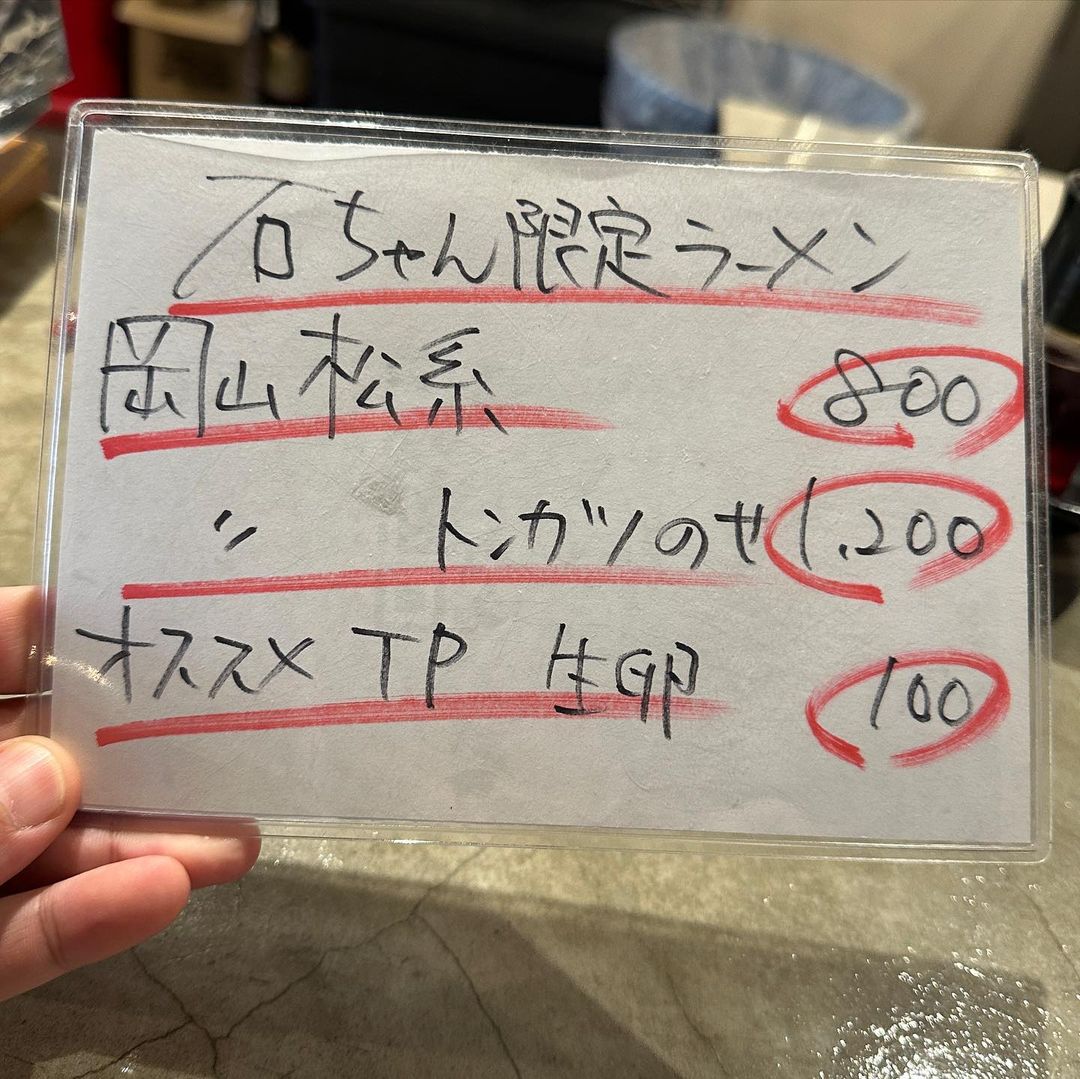 石ちゃん限定ラーメン
岡山松系 800
〃 トンカツのせ 1,200
オススメ TP 生卵 100